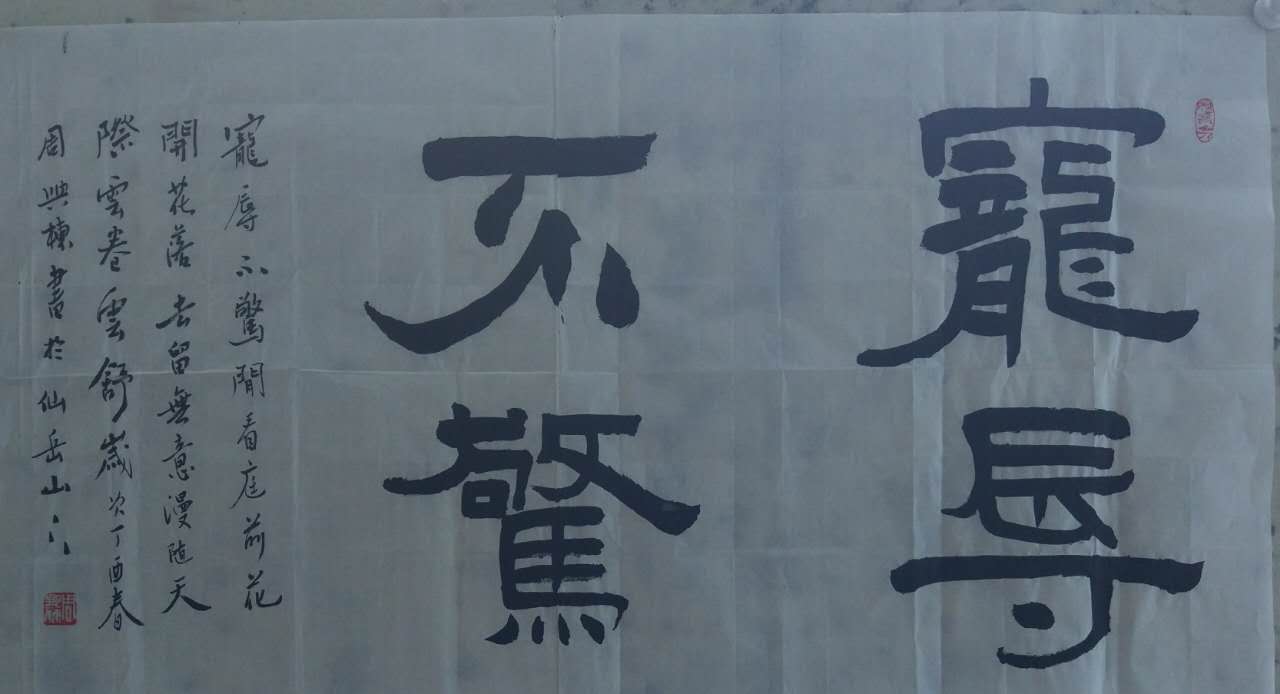 寵辱
不驚
寵辱不驚閒看庭前花
開花落去留無意漫随天
際雲卷雲舒歲次丁酉春
周興棟書於仙岳山下